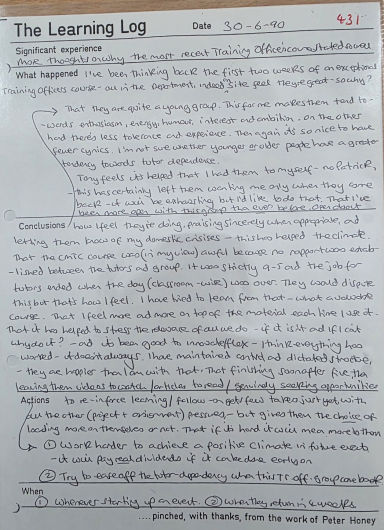 431
The Learning Log Date 30-6-90
Significant experience
More thoughts on why the most recent Training Officer course started so well
What happened I've been thinking back the first two weeks of an exceptional
Training officers course - all in the department, indeed site feel they're great - so why?
That they are quite a young group. This for me makes them tend to-
-wards enthusiasm, energy, humour, interest and ambition. On the other
hand there's less tolerance and experience. Then again it's so nice to have
fewer cynics. I'm not sure whether younger or older people have a greater
tendency towards tutor dependence.
Tony feels it's helped that I had them to myself - no Patrick,
- this has certainly left them wanting me only when they come
back - it will be exhausting but I'd like to do that. That I've
been more open with this group than ever before. Open about
Conclusions / how I feel they're doing, praising sincerely when appropriate, and
letting them know of my domestic crisises - this has helped the climate.
That the CMTC course was (in my view) awful because no rapport was estab-
-lished between the tutors and group. It was strictly 9-5 and the job for
tutors ended when the day (classroom-wise) was over. They would dispute
this but that's how I feel. I have tried to learn from that - what a valuable
course. That I feel more and more on top of the material each time I use it.
That it has helped to stress the relevance of all we do - if it isn't and if I can't
why do it? - and it's been good to
worked - it doesn't always. I have maintained control and dictated
- they are happier than I am with that. That finishing soon after five, then
leaving them videos to watch / articles to read / genuinely seeking opportunities
Actions to re-inforce learning / follow-on gets few takers just yet, with
all the other (project + assignment) pressures - but gives them the choice of
loading more on themselves or not. That if its hard it will mean more to them
① Work harder to achieve a positive climate in future events
- it will pay real dividends if it can be done early on
② Try to ease off the tutor-dependency when this TO off-group come back
When
① Whenever starting up an event. ② When they return in 4 weeks
.... pinched, with thanks, from the work of Peter Honey